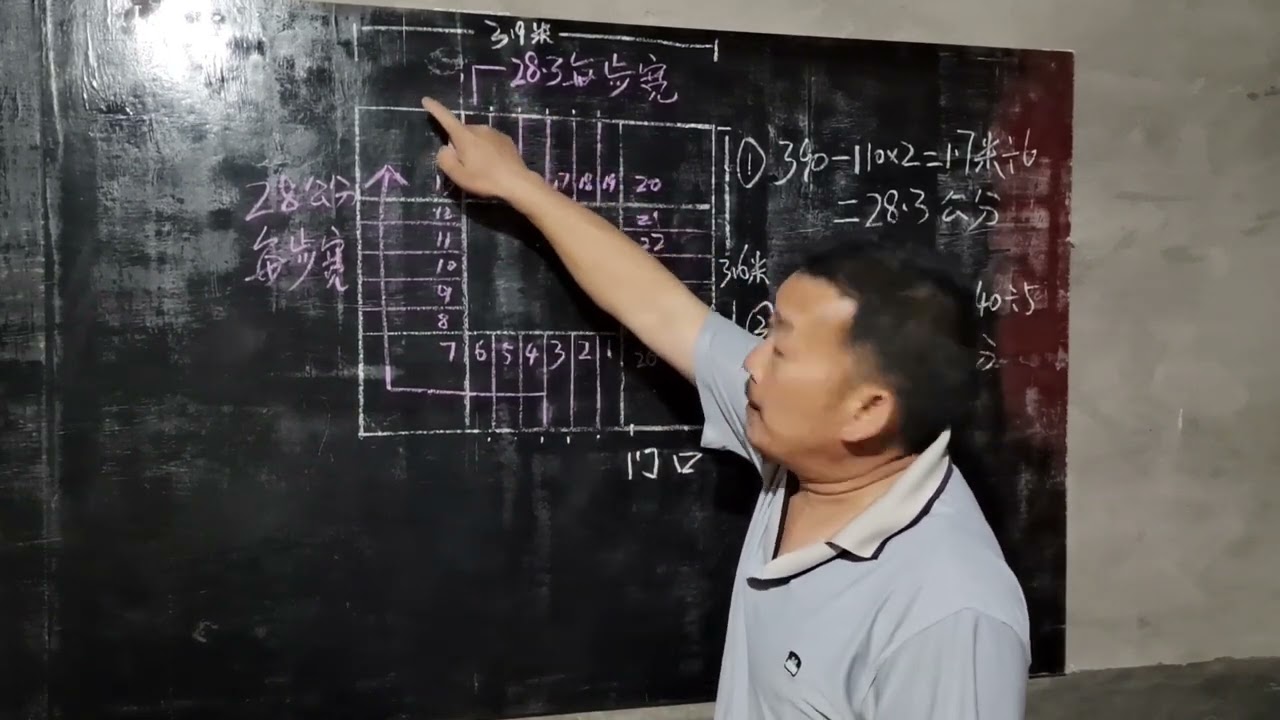 3.9米
28.3每步宽
① 390-110×2=1.7米÷6
=28.3公分
28公分
每步宽
17 18 19 20
12 21
11 22
10
9
8
7 6 5 4 3 2 1 26
3.6米
②
40÷5
门口